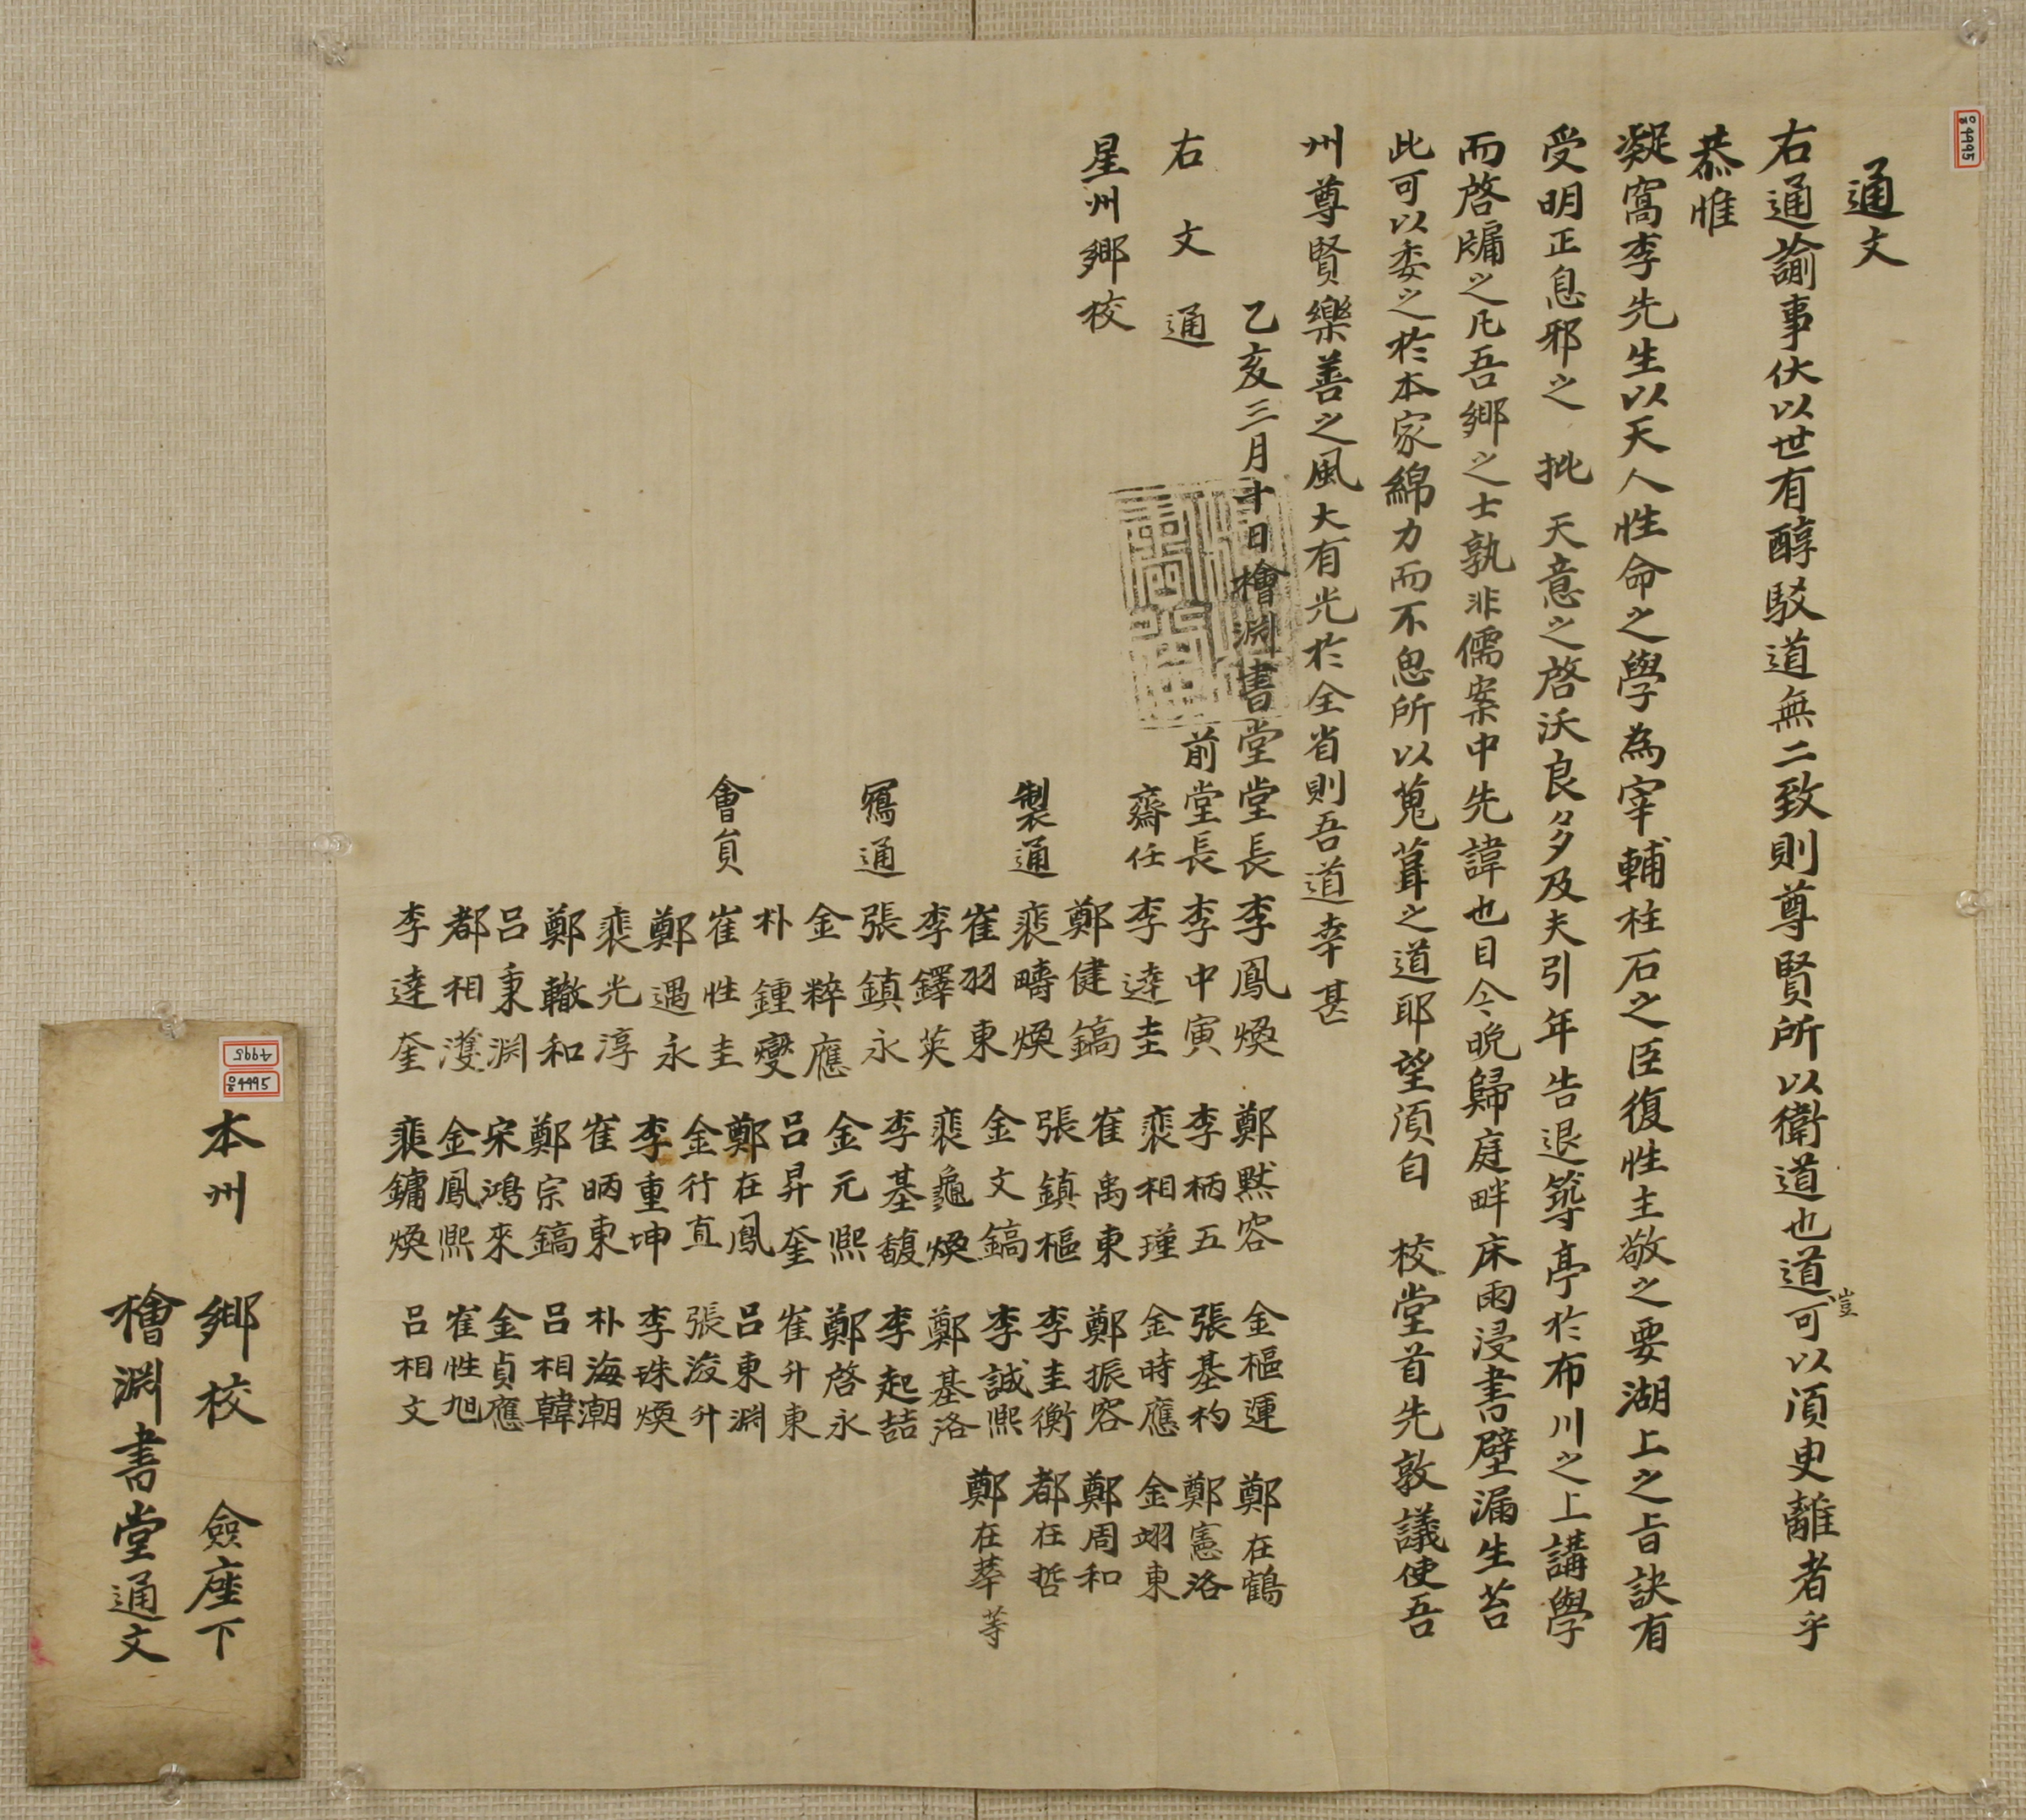 通文
右通諭事伏以世有醇駁道無二致則尊賢所以衛道也道豈可以須臾離者乎
恭惟
凝窩李先生以天人性命之學為宰輔柱石之臣復性主敬之要湖上之旨訣有
受明正息邪之 批 天意之啓沃良多及夫引年告退築亭於布川之上講學
而啓牖之凡吾鄉之士孰非儒案中先諱也目今晩歸庭畔床雨浸書壁漏生苔
此可以委之於本家綿力而不思所以蒐葺之道耶望須自 校堂首先敦議使吾
州尊賢樂善之風大有光於全省則吾道幸甚
乙亥三月十日檜淵書堂堂長李鳳煥 鄭默容 金樞運 鄭在鶴
右文通 前堂長李中寅 李柄五 張基杓 鄭憲洛
星州鄉校 齋任 李逵圭 裵相瑾 金時應 金翊東
鄭健鎬 崔禹東 鄭振容 鄭周和
製通 裵疇煥 張鎮樞 李圭衡 都在哲
崔羽東 金文鎬 李誠熙 鄭在華等
李鐸英 裵龜煥 鄭基洛
寫通 張鎮永 李基馥 李起喆
金粹應 金元熙 鄭啓永
朴鍾燮 呂昇奎 崔升東
會員 崔性圭 鄭在鳳 呂東淵
鄭遇永 金行直 張浚升
裵光淳 李重坤 李珠煥
鄭轍和 崔昞東 朴海潮
呂秉淵 鄭宗鎬 呂相韓
都相濩 宋鴻來 金貞應
李逵奎 金鳳熙 崔性旭
裵鏞煥 呂相文
本州 鄉校 僉座下
檜淵書堂通文
응4495
4995
응4495